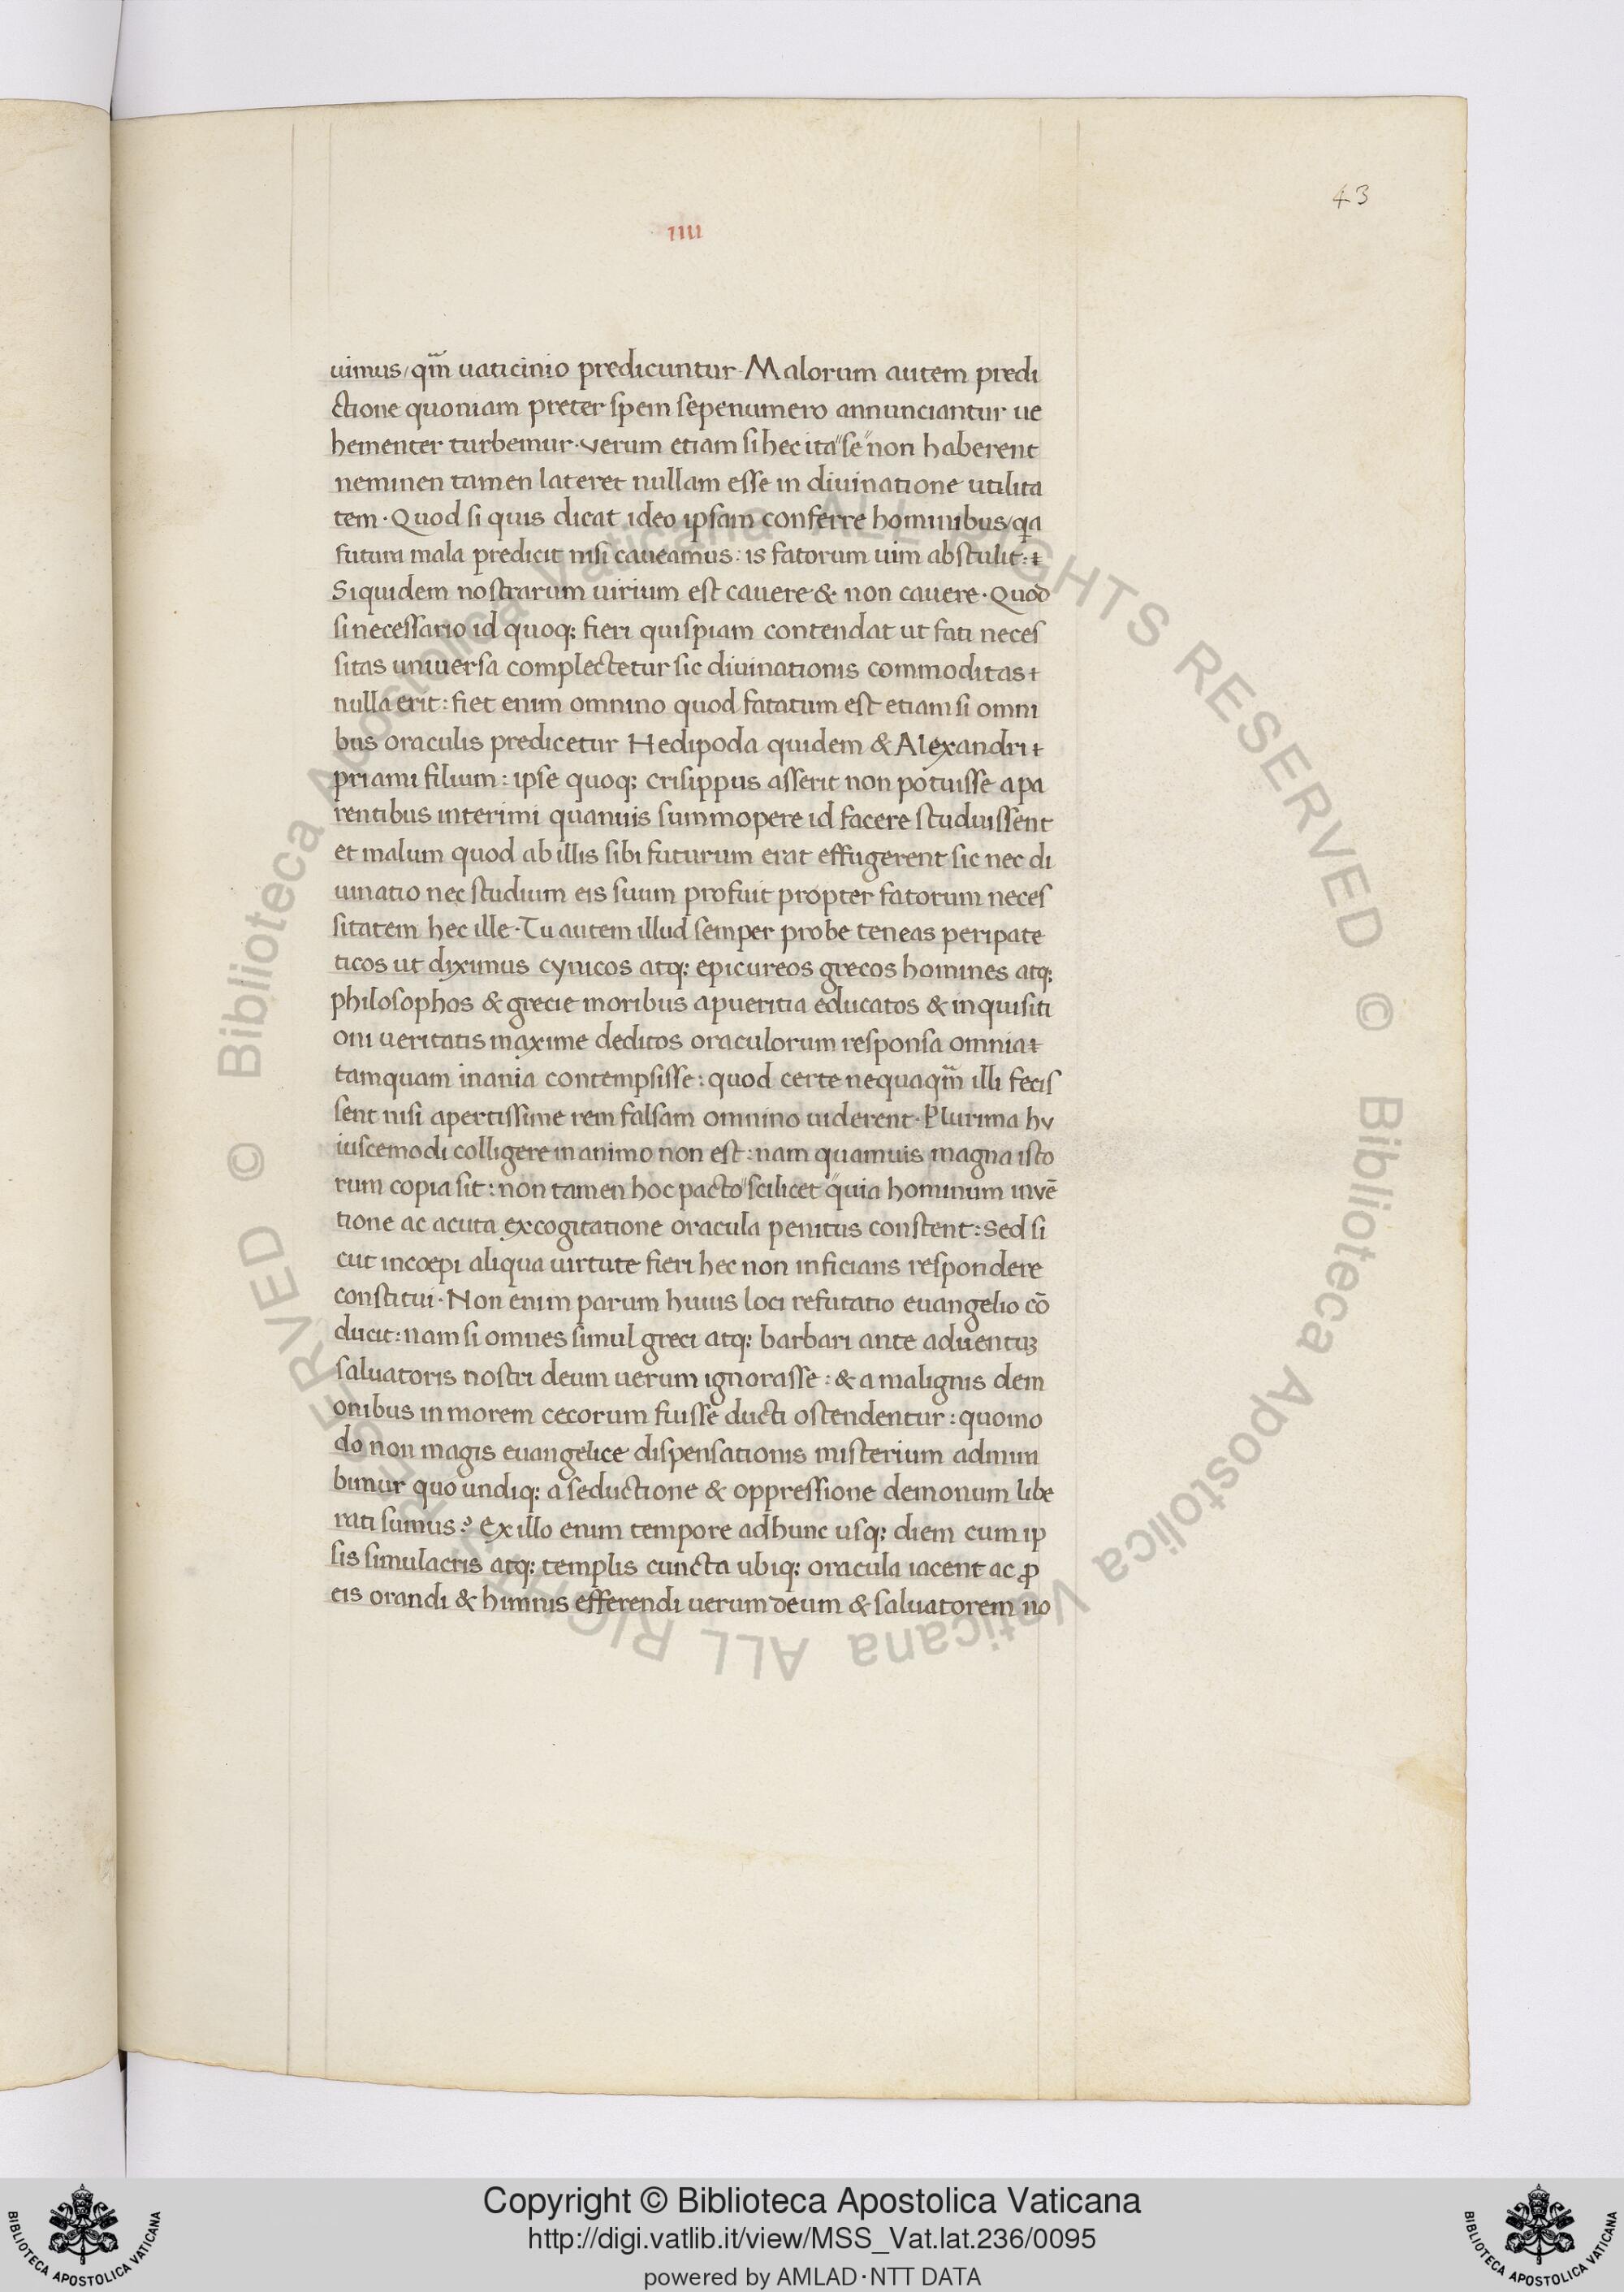 43
IIII
uimus/ qm̃ uaticinio predicuntur. Malorum autem predi
ctione quoniam preter spem sepenumero annunciantur ue
hementer turbemur. verum etiam si hec ita "se" non haberent
neminen tamen lateret nullam esse in diuinatione utilita
tem. Quod si quis dicat ideo ipsam conferre hominibus/ qa
futura mala predicit nisi caueamus: is fatorum uim abstulit:
Siquidem nostrarum uirium est cauere & non cauere. Quod
si necessario id quoq; fieri quispiam contendat ut fati neces
sitas uniuersa complectetur sic diuinationis commoditas
nulla erit: fiet enim omnino quod fatatum est etiam si omni
bus oraculis predicetur Hedipoda quidem & Alexandri
priami filium: ipse quoq; crisippus asserit non potuisse a pa
rentibus interimi quanuis summopere id facere studuissent
et malum quod ab illis sibi futurum erat effugerent sic nec di
uinatio nec studium eis suum profuit propter fatorum neces
sitatem hec ille. Tu autem illud semper probe teneas peripate
ticos ut diximus cynicos atq; epicureos grecos homines atq;
philosophos & grecie moribus a pueritia educatos & inquisiti
oni ueritatis maxime deditos oraculorum responsa omnia
tamquam inania contempsisse: quod certe nequaqm̃ illi fecis
sent nisi apertissime rem falsam omnino uiderent. Plurima hv
iuscemodi colligere in animo non est: nam quamuis magna isto
rum copia sit: non tamen hoc pacto "scilicet" quia hominum invē
tione ac acuta excogitatione oracula penitus constent: sed si
cut incoepi aliqua uirtute fieri hec non inficians respondere
constitui. Non enim parum huius loci refutatio euangelio cō
ducit: nam si omnes simul greci atq; barbari ante aduentuʒ
saluatoris nostri deum uerum ignorasse: & a malignis dem
onibus in morem cecorum fuisse ducti ostendentur: quomo
do non magis euangelice dispensationis misterium admira
bimur quo undiq; a seductione & oppressione demonum libe
rati sumus? Ex illo enim tempore ad hunc usq; diem cum ip
sis simulacris atq; templis cuncta ubiq; oracula iacent ac ꝓ
eis orandi & himnis efferendi uerum deum & saluatorem no
© Biblioteca Apostolica Vaticana ALL RIGHTS RESERVED
© Biblioteca Apostolica Vaticana ALL RIGHTS RESERVED
Copyright © Biblioteca Apostolica Vaticana
http://digi.vatlib.it/view/MSS_Vat.lat.236/0095
powered by AMLAD·NTT DATA
BIBLIOTECA APOSTOLICA VATICANA
BIBLIOTECA APOSTOLICA VATICANA